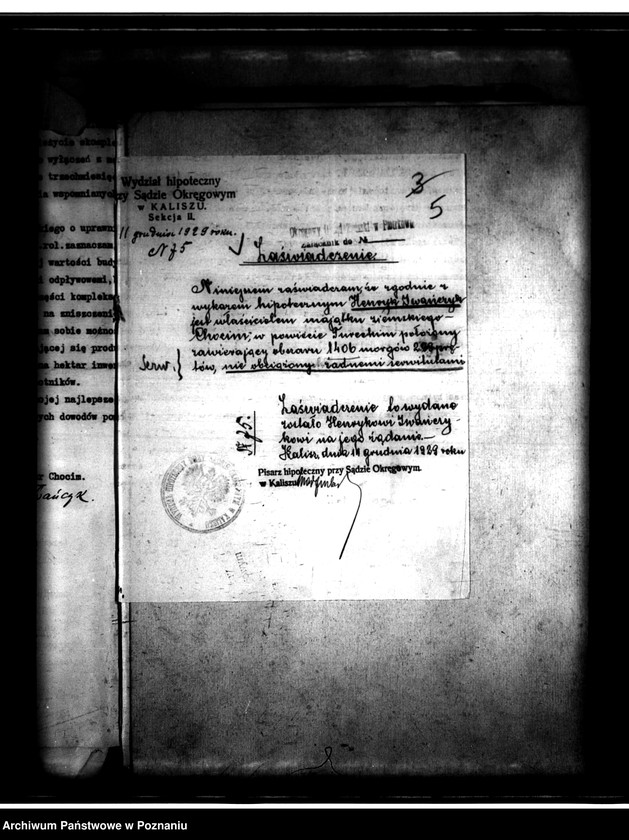 życia
wyłączeń z
trzechmiesię
wspomnianych
iego o uprawn
rol.zaznaczam
wartości bud
odpływowemi,
ości kompleks
na zniszczeni
sobie możno
jącej się produ
na hektar inwe
otników.
ojej najlepsze
ych dowodów po
Chocim.
Wydział hipoteczny
przy Sądzie Okręgowym
w KALISZU.
Sekcja II.
11 grudnia 1929 roku.
№ 75
3
5
Załącznik do №
Zaświadczenie.
Niniejszem zaświadczam, że zgodnie z
wykazem hipotecznym Henryk Iwańczyk
jest właścicielem majątku ziemskiego
Chocim, w powiecie Tureckim położony
zawierający obszaru 1406 morgów 298 prę-
tów, nie obciążony żadnemi serwitutami
Serw.}
Zaświadczenie to wydane
zostało Henrykowi Iwańczy-
kowi na jego żądanie.—
Kalisz, dnia 11 grudnia 1929 roku
№ 75.
Pisarz hipoteczny przy Sądzie Okręgowym.
w Kaliszu
Archiwum Państwowe w Poznaniu